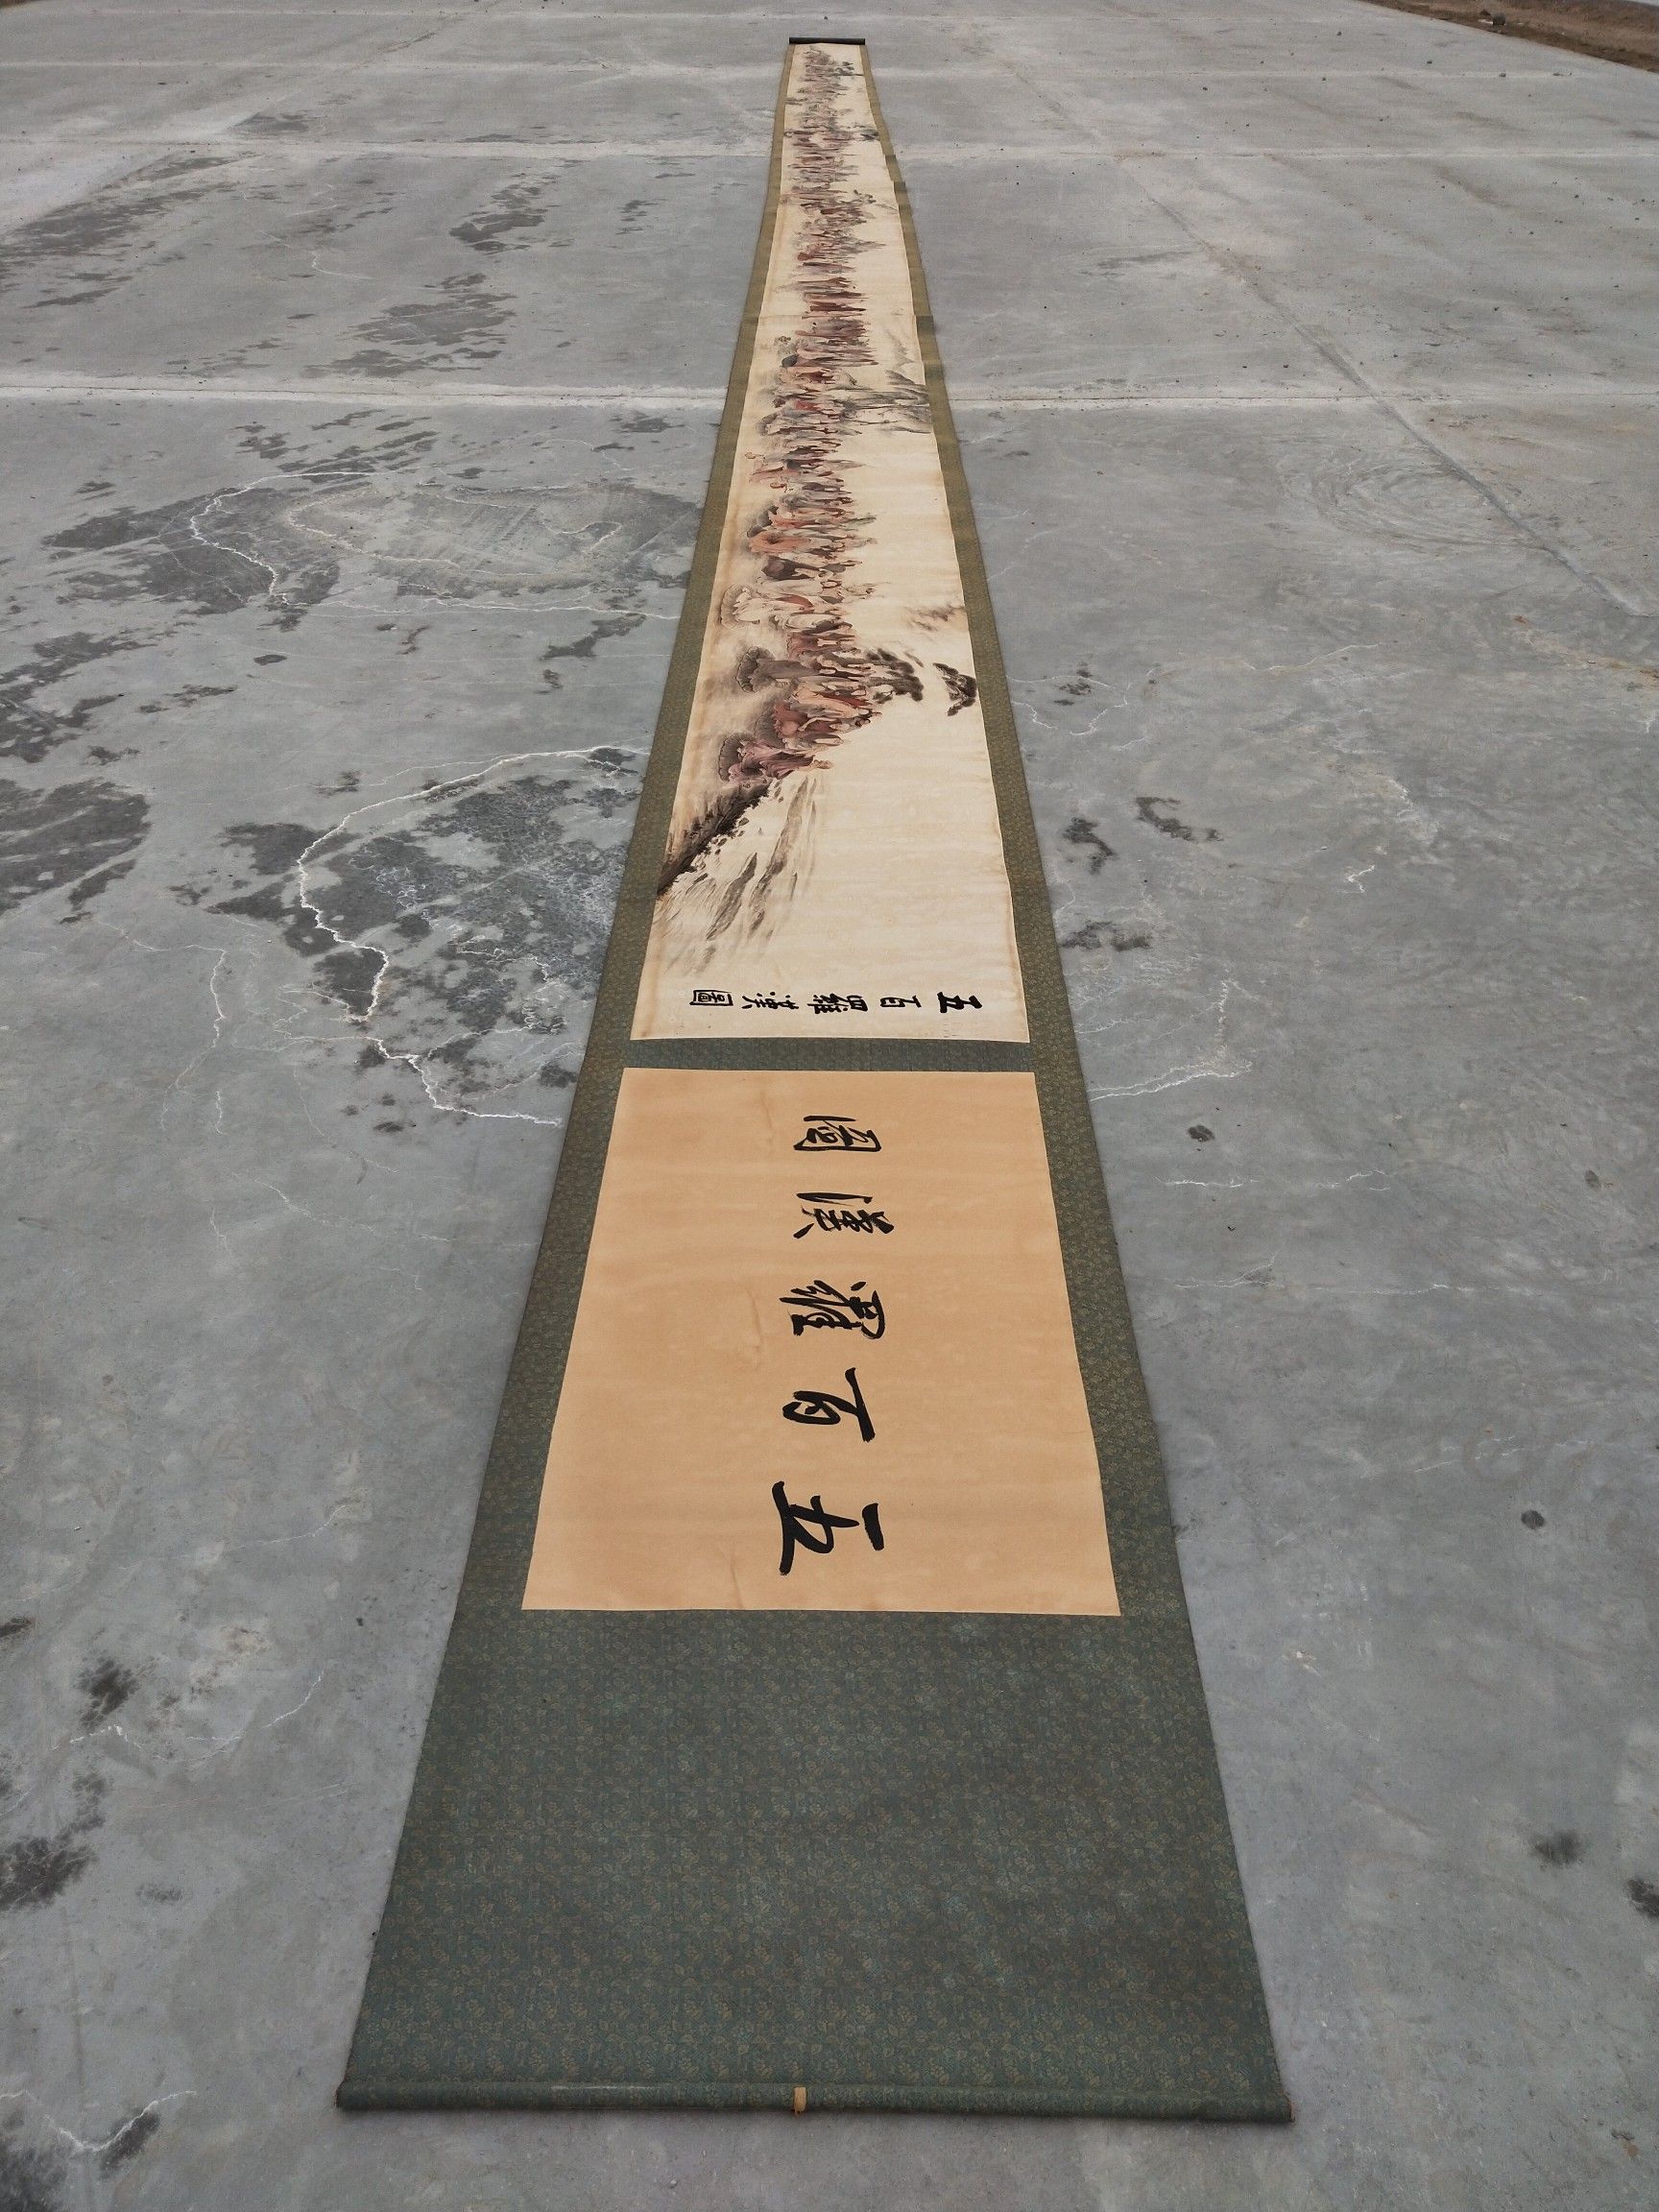 五百羅漢圖
五百羅漢圖